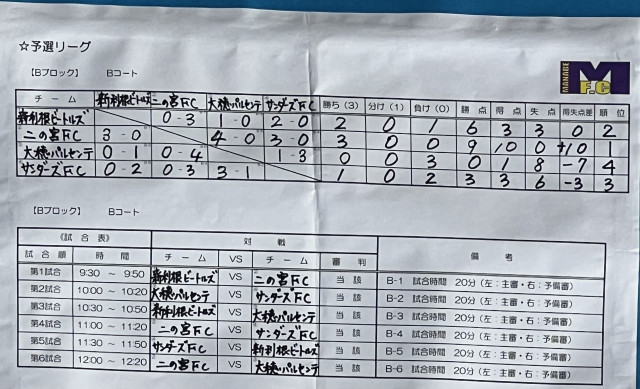 ☆予選リーグ
【Bブロック】 Bコート
MANABE M F.C
チーム 新利根ビートルズ 二の宮FC 大穂パルセンテ サンダーズFC 勝ち(3) 分け(1) 負け(0) 勝点 得点 失点 得失点差 順位
新利根ビートルズ 0-3 1-0 2-0 2 0 1 6 3 3 0 2
二の宮FC 3-0 4-0 3-0 3 0 0 9 10 0 +10 1
大穂パルセンテ 0-1 0-4 1-3 0 0 3 0 1 8 -7 4
サンダーズFC 0-2 0-3 3-1 1 0 2 3 3 6 -3 3
【Bブロック】 Bコート
《試合表》 対戦 備考
試合順 時間 チーム VS チーム 審判
第1試合 9:30 ～ 9:50 新利根ビートルズ VS 二の宮FC 当該 B-1 試合時間 20分(左:主審・右:予備審)
第2試合 10:00 ～ 10:20 大穂パルセンテ VS サンダーズFC 当該 B-2 試合時間 20分(左:主審・右:予備審)
第3試合 10:30 ～ 10:50 新利根ビートルズ VS 大穂パルセンテ 当該 B-3 試合時間 20分(左:主審・右:予備審)
第4試合 11:00 ～ 11:20 二の宮FC VS サンダーズFC 当該 B-4 試合時間 20分(左:主審・右:予備審)
第5試合 11:30 ～ 11:50 サンダーズFC VS 新利根ビートルズ 当該 B-5 試合時間 20分(左:主審・右:予備審)
第6試合 12:00 ～ 12:20 二の宮FC VS 大穂パルセンテ 当該 B-6 試合時間 20分(左:主審・右:予備審)